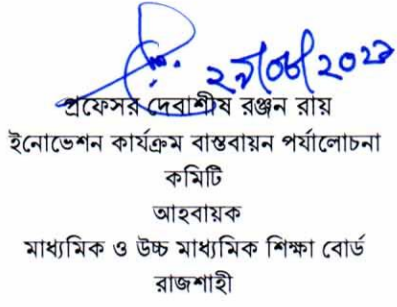 প্রফেসর দেবাশীষ রঞ্জন রায়
ইনোভেশন কার্যক্রম বাস্তবায়ন পর্যালোচনা
কমিটি
আহবায়ক
মাধ্যমিক ও উচ্চ মাধ্যমিক শিক্ষা বোর্ড
রাজশাহী